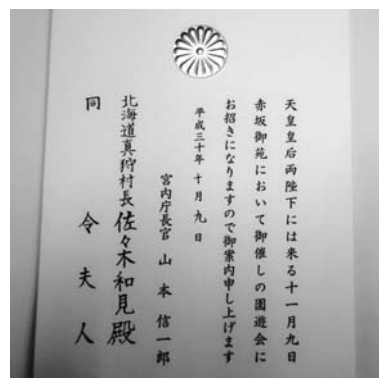 天皇皇后両陛下には来る十一月九日
赤坂御苑において御催しの園遊会に
お招きになりますので御案内申し上げます
平成三十年十月九日
宮内庁長官 山本信一郎
北海道真狩村長 佐々木和見殿
同 令夫人